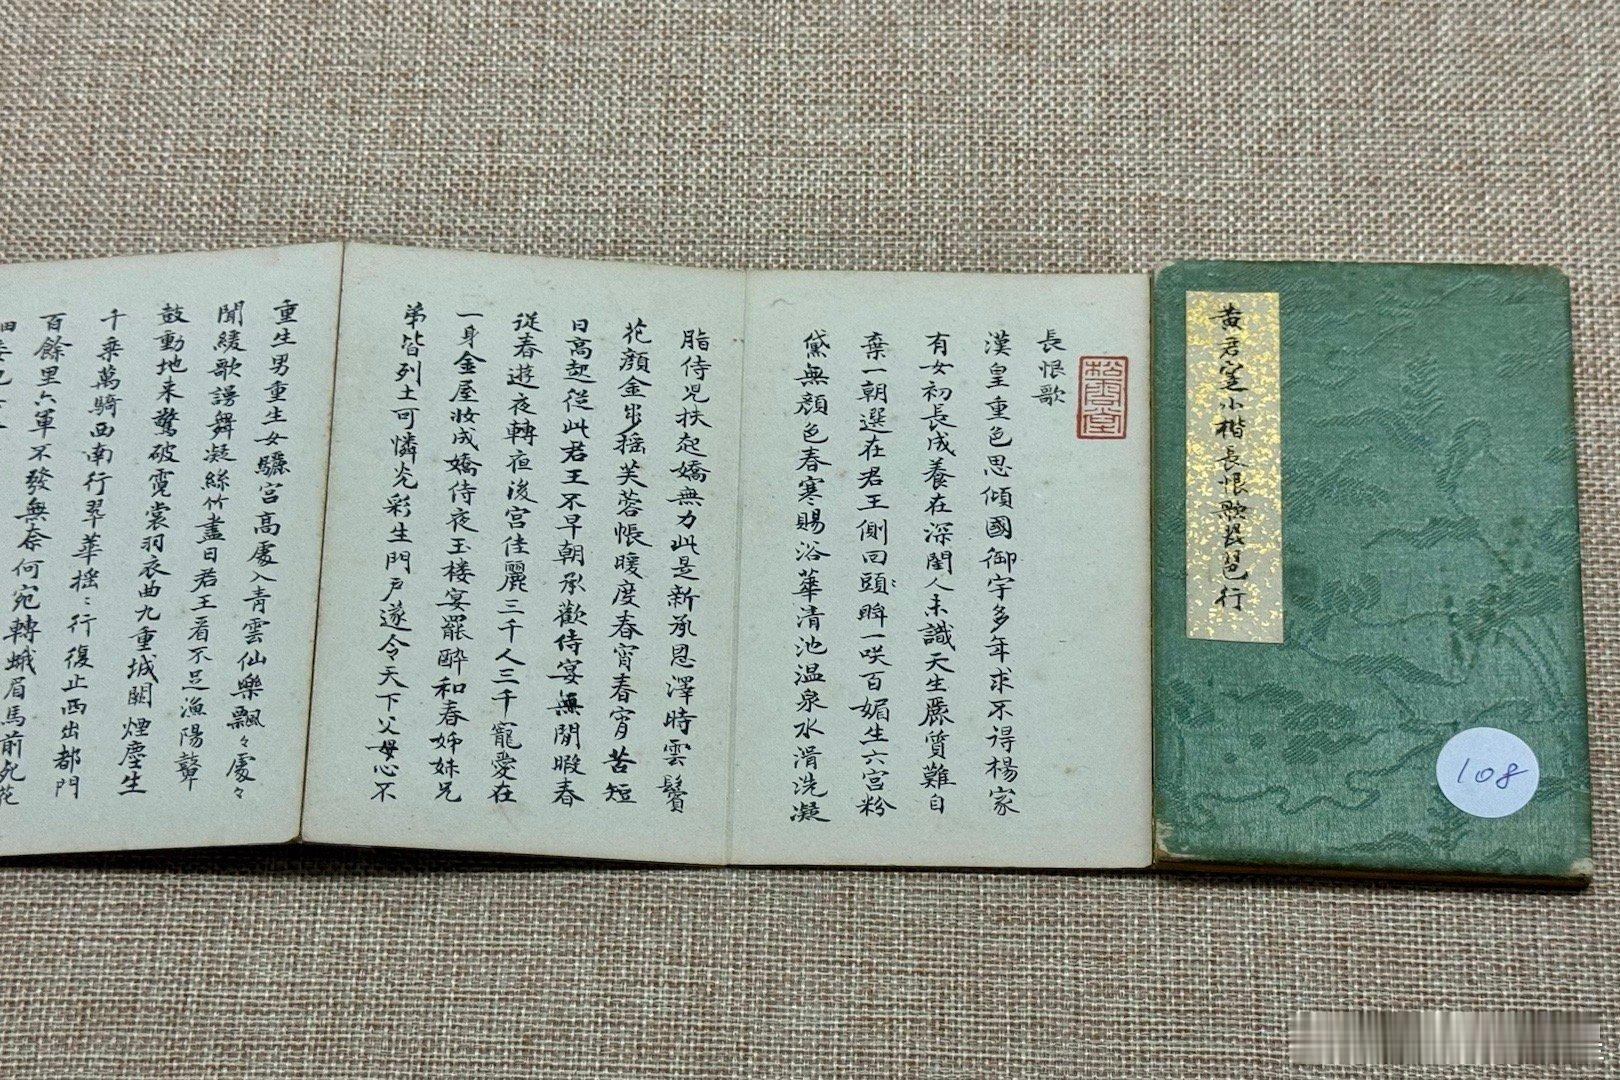 黄君寔小楷長恨歌琵琶行
108
松雪堂
長恨歌
漢皇重色思傾國御宇多年求不得楊家
有女初長成養在深閨人未識天生麗質難自
棄一朝選在君王側回頭眸一咲百媚生六宮粉
黛無顏色春寒賜浴華清池温泉水滑洗凝
脂侍兒扶起嬌無力此是新承恩澤時雲鬢
花顏金步摇芙蓉帳暖度春宵春宵苦短
日高起從此君王不早朝承歡侍宴無閒暇春
從春遊夜轉夜後宮佳麗三千人三千寵愛在
一身金屋妝成嬌侍夜玉楼宴罷醉和春姊妹兄
弟皆列土可憐光彩生門戶遂令天下父母心不
重生男重生女驪宮高處入青雲仙樂飄々處々
聞緩歌謾舞凝絲竹盡日君王看不足漁陽鼙
鼓動地来驚破霓裳羽衣曲九重城闕煙塵生
千乘萬騎西南行翠華摇々行復止西出都門
百餘里六軍不發無奈何宛轉蛾眉馬前死花